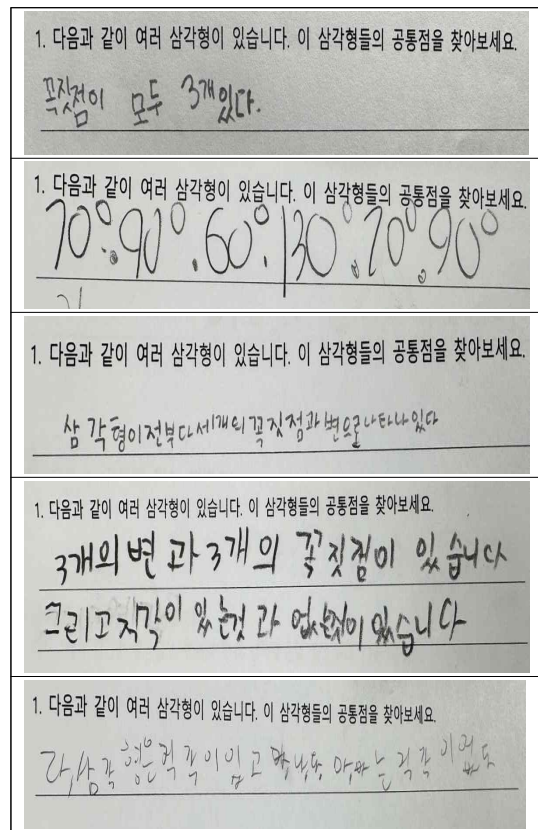 1. 다음과 같이 여러 삼각형이 있습니다. 이 삼각형들의 공통점을 찾아보세요.
꼭짓점이 모두 3개있다.
1. 다음과 같이 여러 삼각형이 있습니다. 이 삼각형들의 공통점을 찾아보세요.
70°. 90°. 60°. 130°. 70°. 90°
1. 다음과 같이 여러 삼각형이 있습니다. 이 삼각형들의 공통점을 찾아보세요.
삼각형이전부다세개의꼭짓점과변으로나타나있다
1. 다음과 같이 여러 삼각형이 있습니다. 이 삼각형들의 공통점을 찾아보세요.
3개의변과3개의 꼭짓점이 있습니다
그리고직각이 있는것과 없는것이있습니다
1. 다음과 같이 여러 삼각형이 있습니다. 이 삼각형들의 공통점을 찾아보세요.
라,삼각형은직각이있고 직각이없